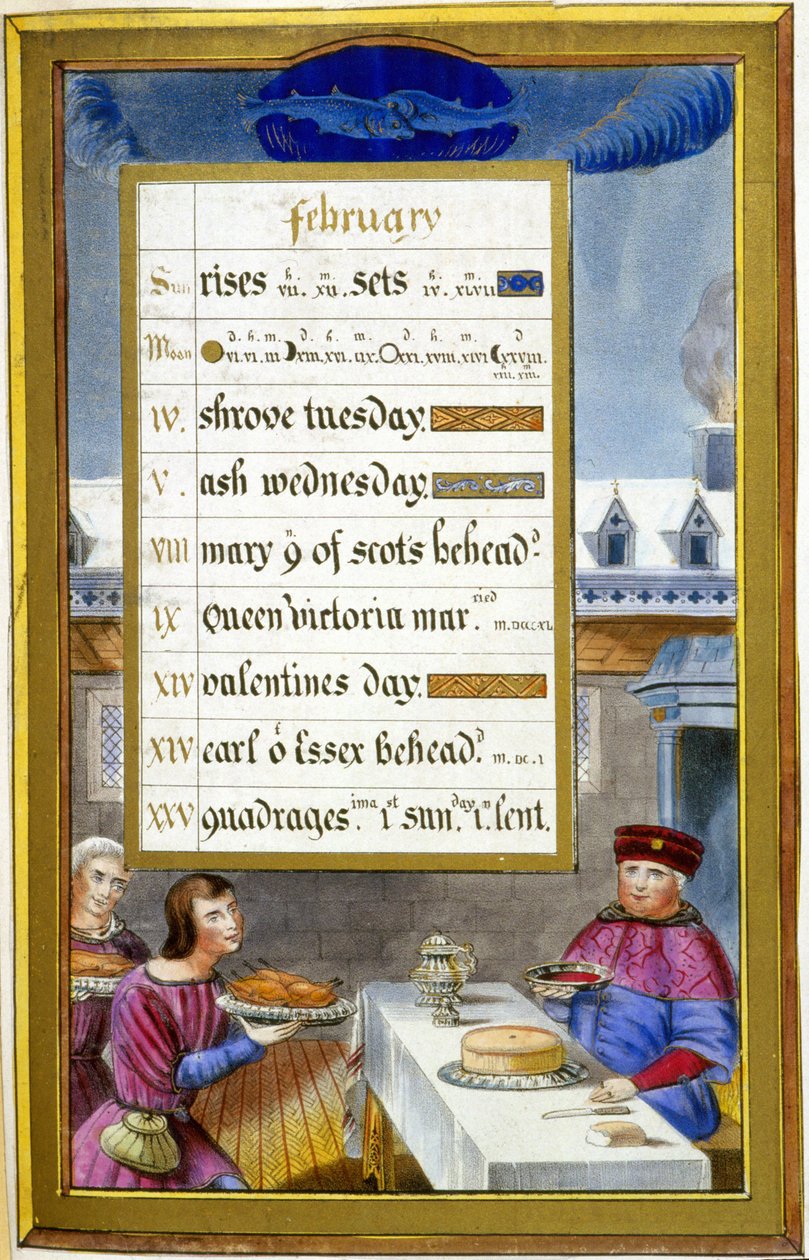 february
Sun rises h. vii. m. xii. sets h. iv. m. xlvii
Moon d. h. m. d. h. m. d. h. m. d
vi. vi. iii xiii. xvi. iix. xxi. xviii. xlvi xxviii.
h m
viii. xiii.
iv. shrove tuesday.
v. ash wednesday.
viii mary q^n of scots behead^d.
ix Queen Victoria mar^ried. m.dccc.xl
xiv valentines day.
xiv earl o^f Essex behead^d. m.dc.i
xxv quadrages^ima. i^st sun^day. i^n. lent.